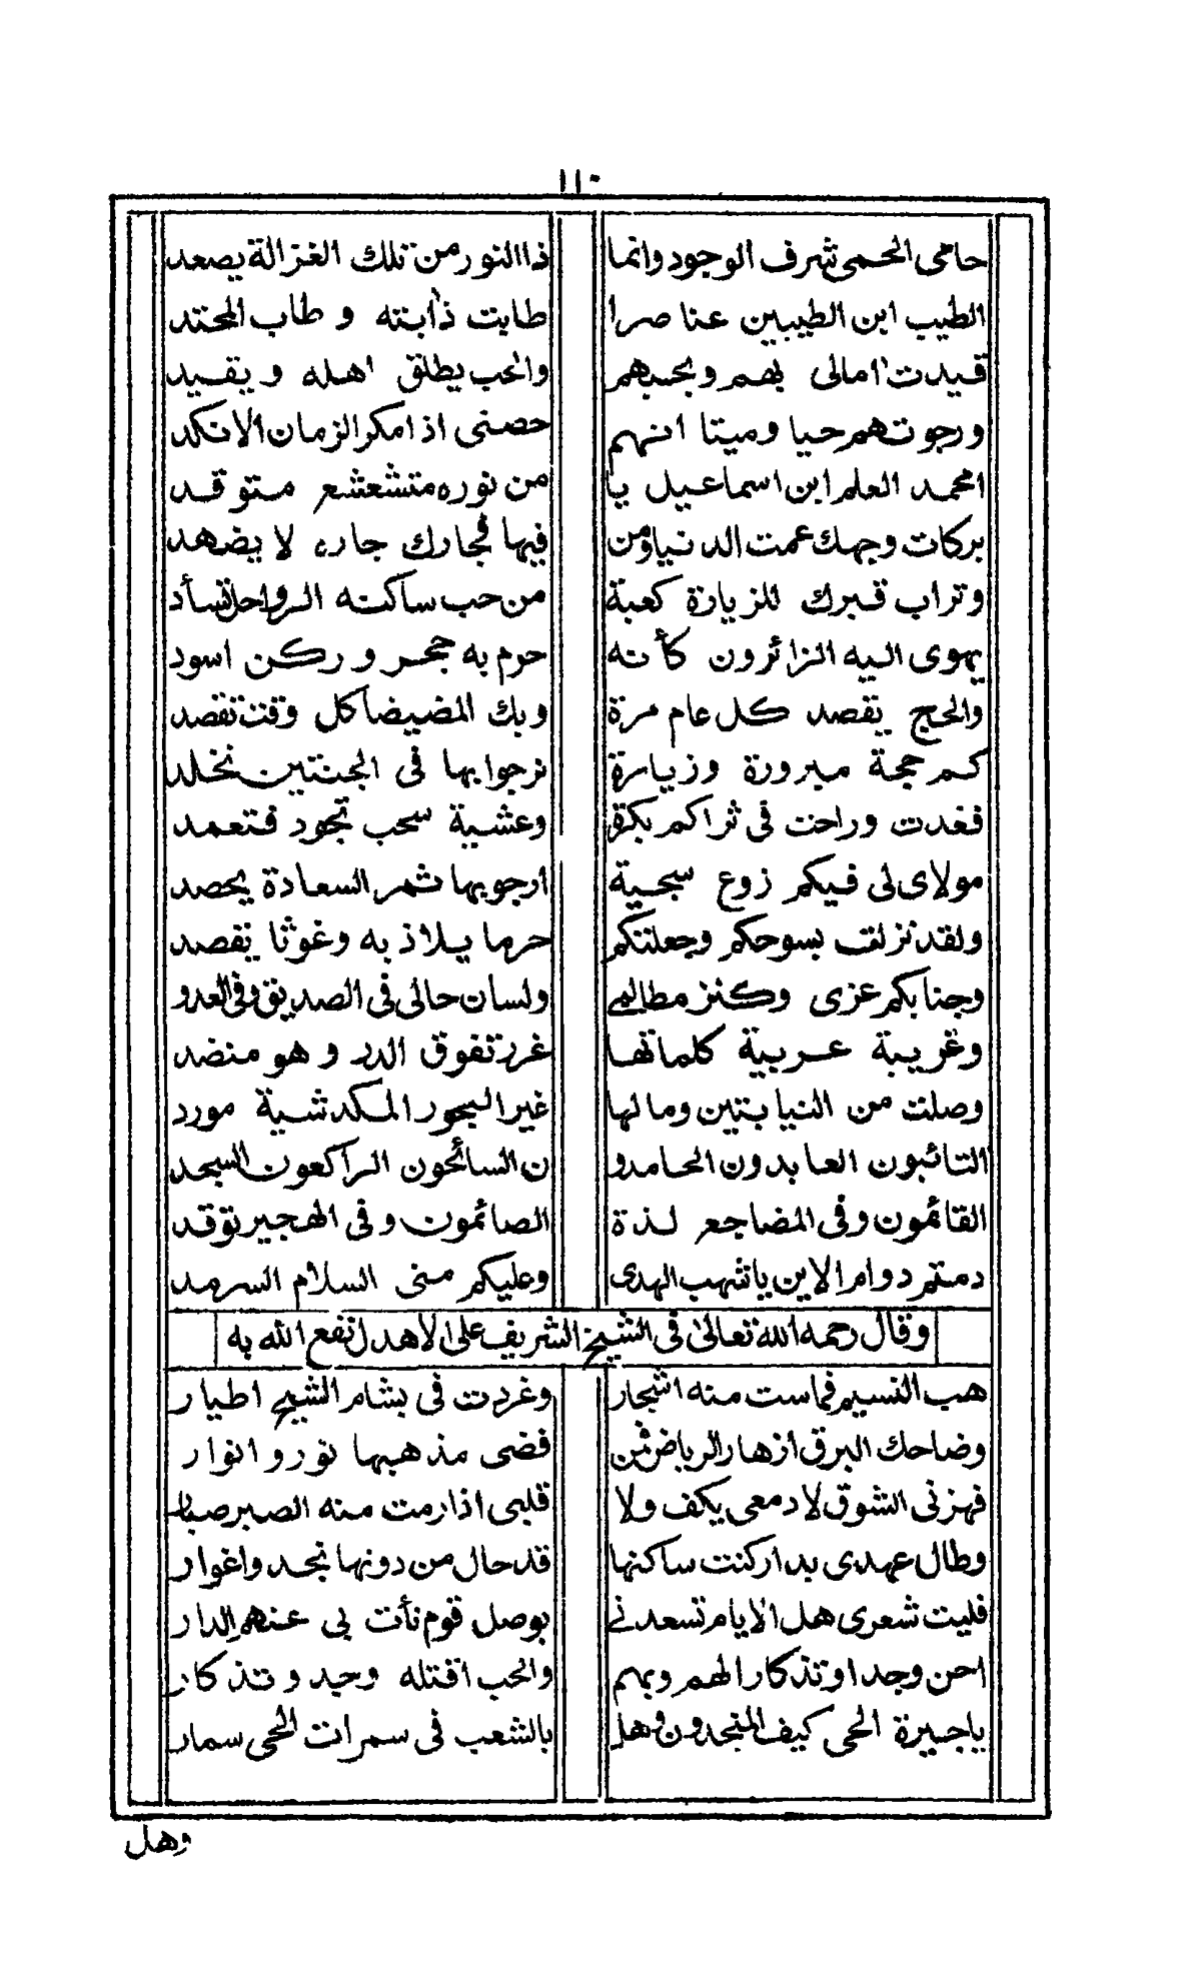 ١١٠
حامى الحمى شرف الوجود وانما ذا النور من تلك الغزالة يصعد
الطيب ابن الطيبين عناصرا طابت ذابته و طاب المحتد
قيدت امالى بهم وبحبهم والحب يطلق اهله ويقيد
ورجوتهم حيا وميتا انهم حصنى اذا مكر الزمان الانكد
امحمد العلم ابن اسماعيل يا من نوره متشعشع متوقد
بركات وجهك عمت الدنيا ومن فيها فجارك جاره لا يضهد
وتراب قبرك للزيارة كعبة من حب ساكنه الرواحل تسأد
يهوى اليه الزائرون كأنه حرم به حجر و ركن اسود
والحج يقصد كل عام مرة وبك المضيضا كل وقت تقصد
كم حجة مبرورة وزيارة نرجوا بها فى الجنتين نخلد
فغدت وراحت فى ثراكم بكرة وعشية سحب تجود فتعمد
مولاى لى فيكم زوع سجية ارجوبها ثمر السعادة يحصد
ولقد نزلت بسوحكم وجعلتكم حرما يلاذ به وغوثا يقصد
وجنابكم عزى وكنز مطالبى ولسان حالى فى الصديق وفى العدو
وغريبة عربية كلماتها غرر تفوق الدر و هو منضد
وصلت من النيابتين ومالها غير البحور المكدشية مورد
التائبون العابدون الحامدو ن السائحون الراكعون السجد
القائمون وفى المضاجع لذة الصائمون وفى الهجير توقد
دمتم دوام الابن ياشهب الهدى وعليكم منى السلام السرمد
وقال رحمه الله تعالى فى الشيخ الشريف على الاهدل نفع الله به
هب النسيم فماست منه اشجار وغردت فى بشام الشيح اطيار
وضاحك البرق ازهار الرياض فمن فضى مذهبها نور و انوار
فهزنى الشوق لا دمعى يكف ولا قلبى اذا رمت منه الصبر صبار
وطال عهدى بدار كنت ساكنها قد حال من دونها نجد واغوار
فليت شعرى هل الايام تسعدنى بوصل قوم نأت بى عنهم الدار
احن وجدا وتذكارا لهم وبهم والحب اقتله وجيد وتذكار
ياجيرة الحى كيف المنجدون وهل بالشعب فى سمرات الحى سمار
وهل